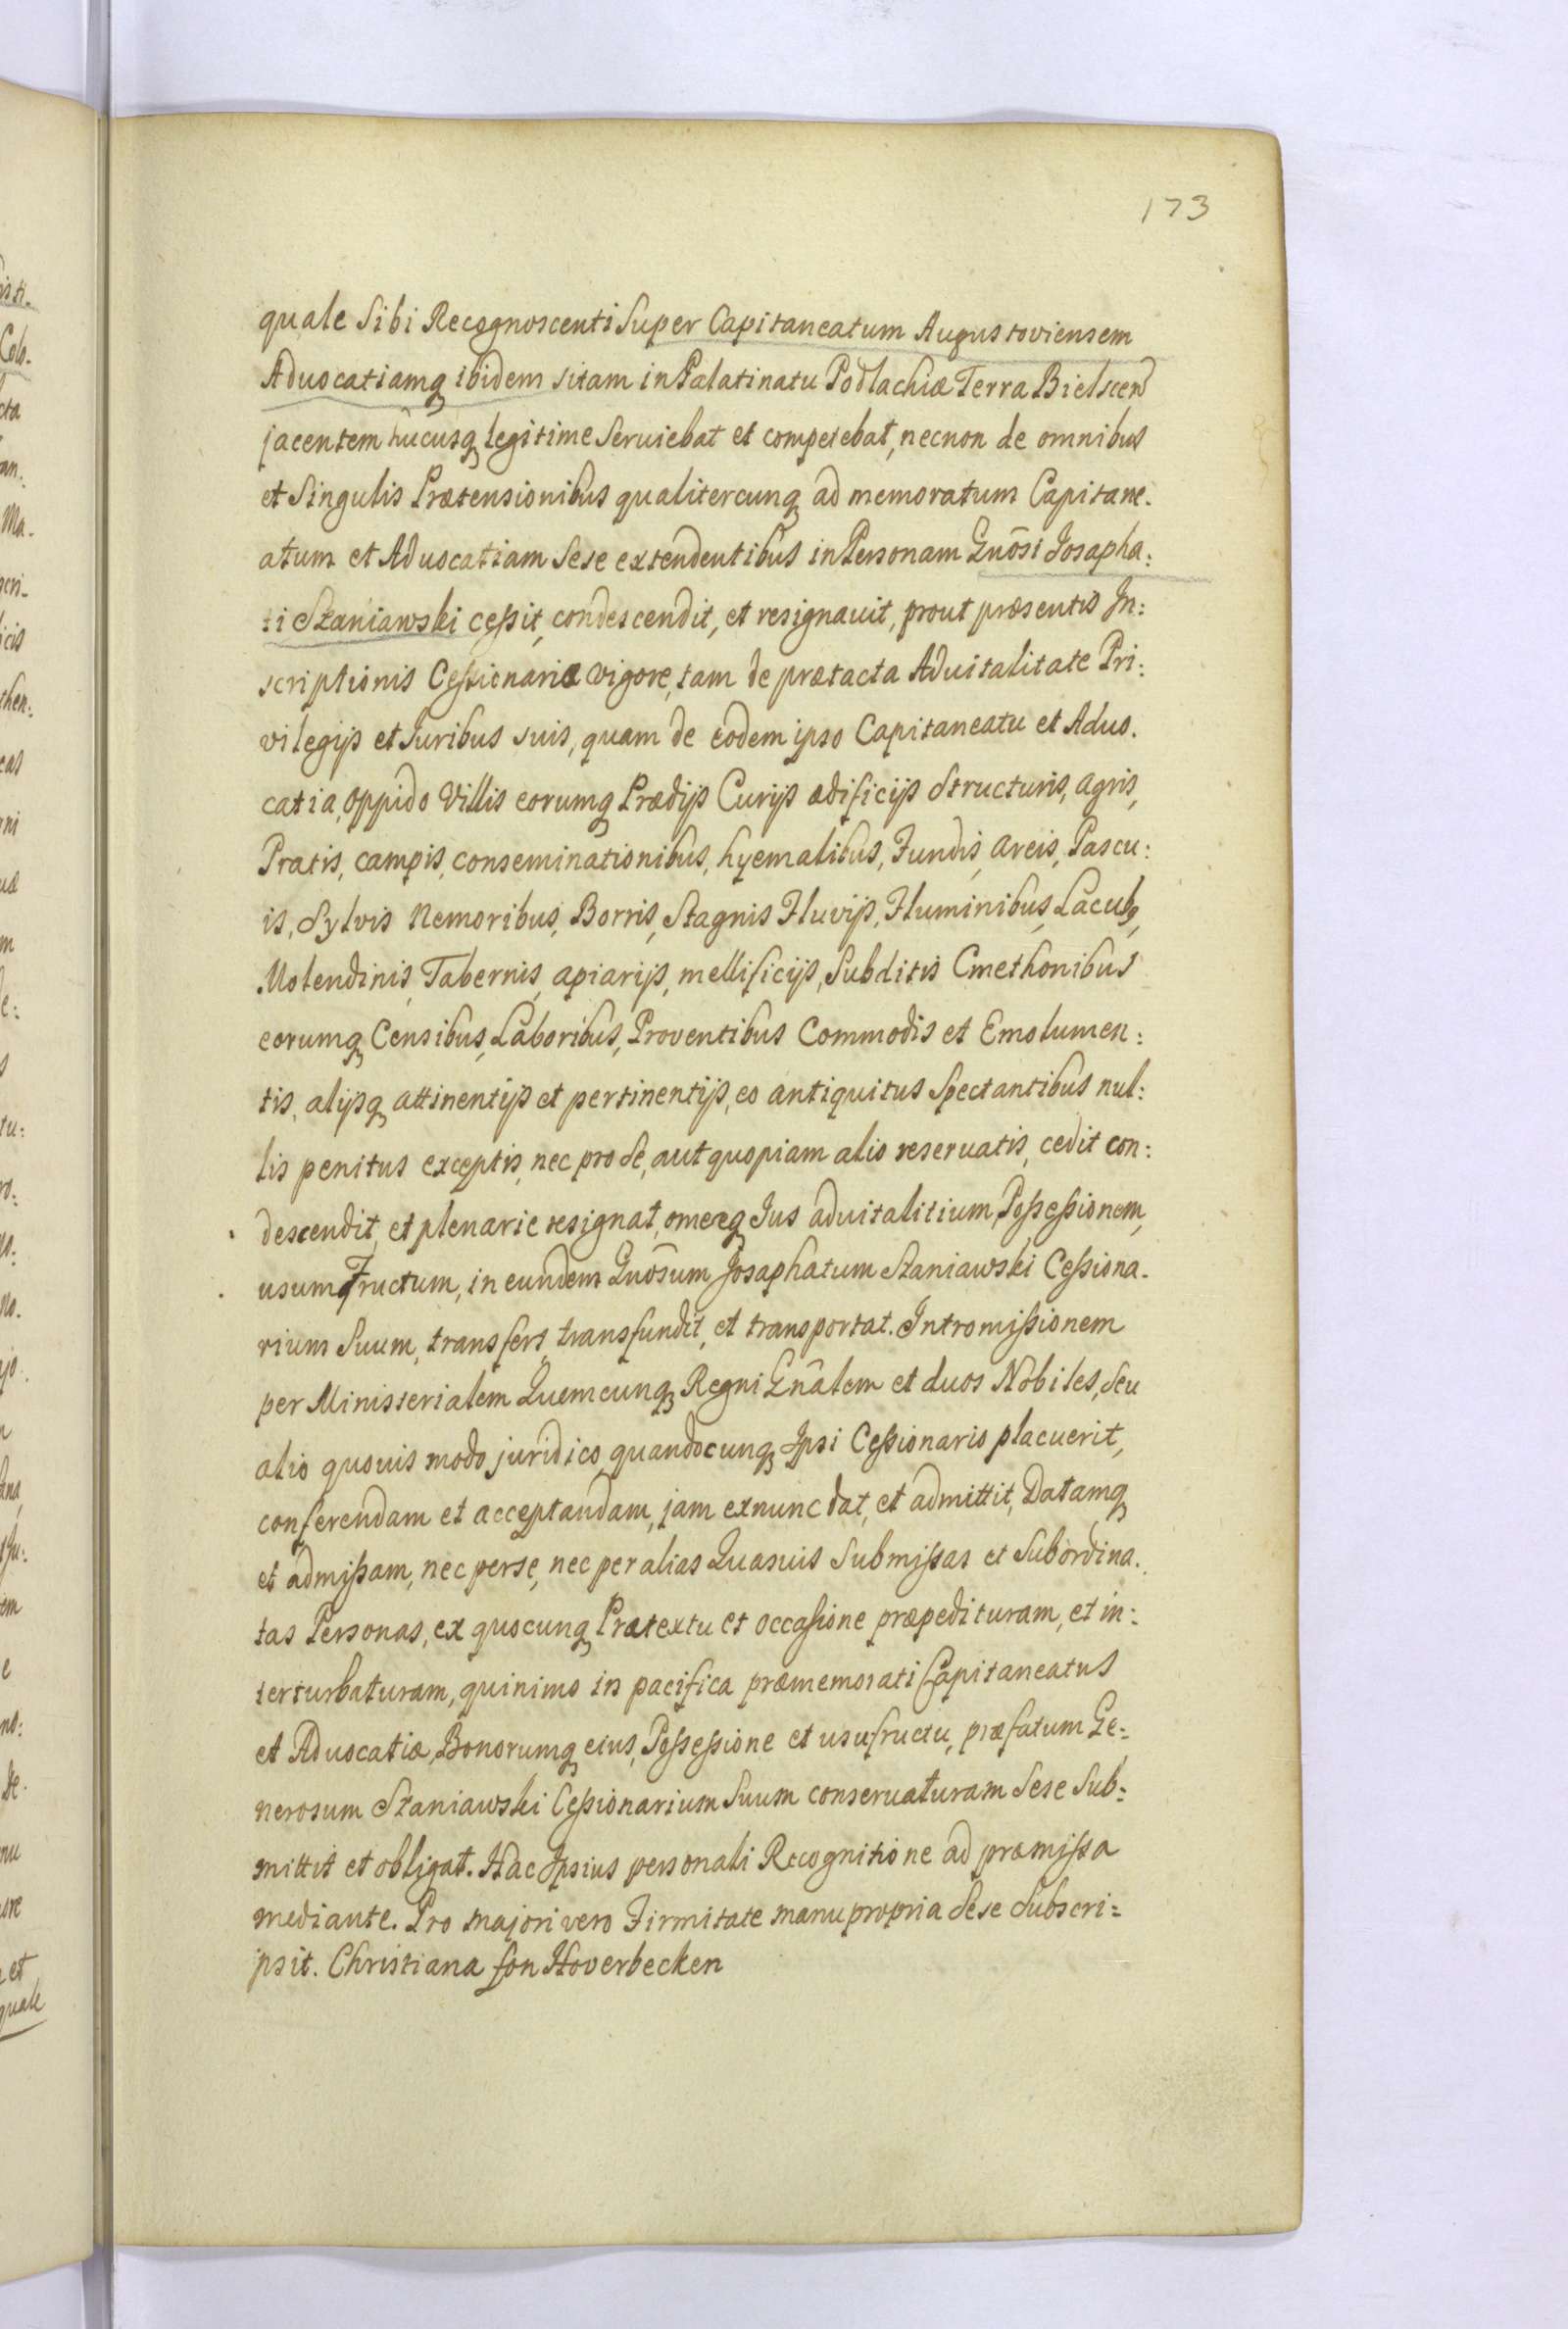 173
quale Sibi Recognoscenti Super Capitaneatum Augustoviensem
Aduocatiamq ibidem sitam in Palatinatu Podlachiæ Terra Bielscen
jacentem hucusq legitime Seruiebat et competebat, necnon de omnibus
et Singulis Prætensionibus qualitercunq ad memoratum Capitane-
atum et Aduocatiam Sese extendentibus in Personam Gnōsi Josapha:
ti Staniawski cessit, condescendit, et resignauit, prout præsentis In:
scriptionis Cessionariæ vigore, tam de prætacta Aduitalitate Pri:
vilegijs et Juribus suis, quam de eodem ipso Capitaneatu et Aduo-
catia, oppido Villis eorumq Prædijs Curijs ædificijs Structuris, agris,
Pratis, campis, conseminationibus, hyemalibus, Fundis, areis, Pascu:
is, Sylvis Nemoribus, Borris, Stagnis Fluvijs, Fluminibus, Lacub,
Molendinis, Tabernis, apiarijs, mellificijs, Subditis Cmethonibus
eorumq Censibus, Laboribus, Proventibus Commodis et Emolumen:
tis, alijsq attinentijs et pertinentijs, eo antiquitus Spectantibus nul:
lis penitus exceptis, nec pro Se, aut quopiam alio reseruatis, cedit con:
descendit, et plenarie resignat, omeq Jus aduitalitium, Possessionem,
usumFructum, in eundem Gnōsum Josaphatum Staniawski Cessiona-
rium Suum, transfert, transfundit, et transportat. Intromissionem
per Ministerialem Quemcunq Regni Gnālem et duos Nobiles, Seu
alio quouis modo juridico, quandocunq Ipsi Cessionario placuerit,
conferendam et acceptandam, jam exnunc dat, et admittit, Datamq
et admissam, nec per se, nec per alias Quasuis Submissas et Subordina-
tas Personas, ex quocunq Prætextu et occasione præpedituram, et in:
terturbaturam, quinimo in pacifica præmemorati Capitaneatus
et Aduocatiæ, Bonorumq eius, Possessione et usufructu, præfatum Ge:
nerosum Staniawski Cessionarium Suum conseruaturam Sese Sub:
mittit et obligat. Hac Ipsius personali Recognitione ad præmissa
mediante. Pro majori vero Firmitate manu propria Sese Subscri:
psit. Christiana fon Hoverbecken